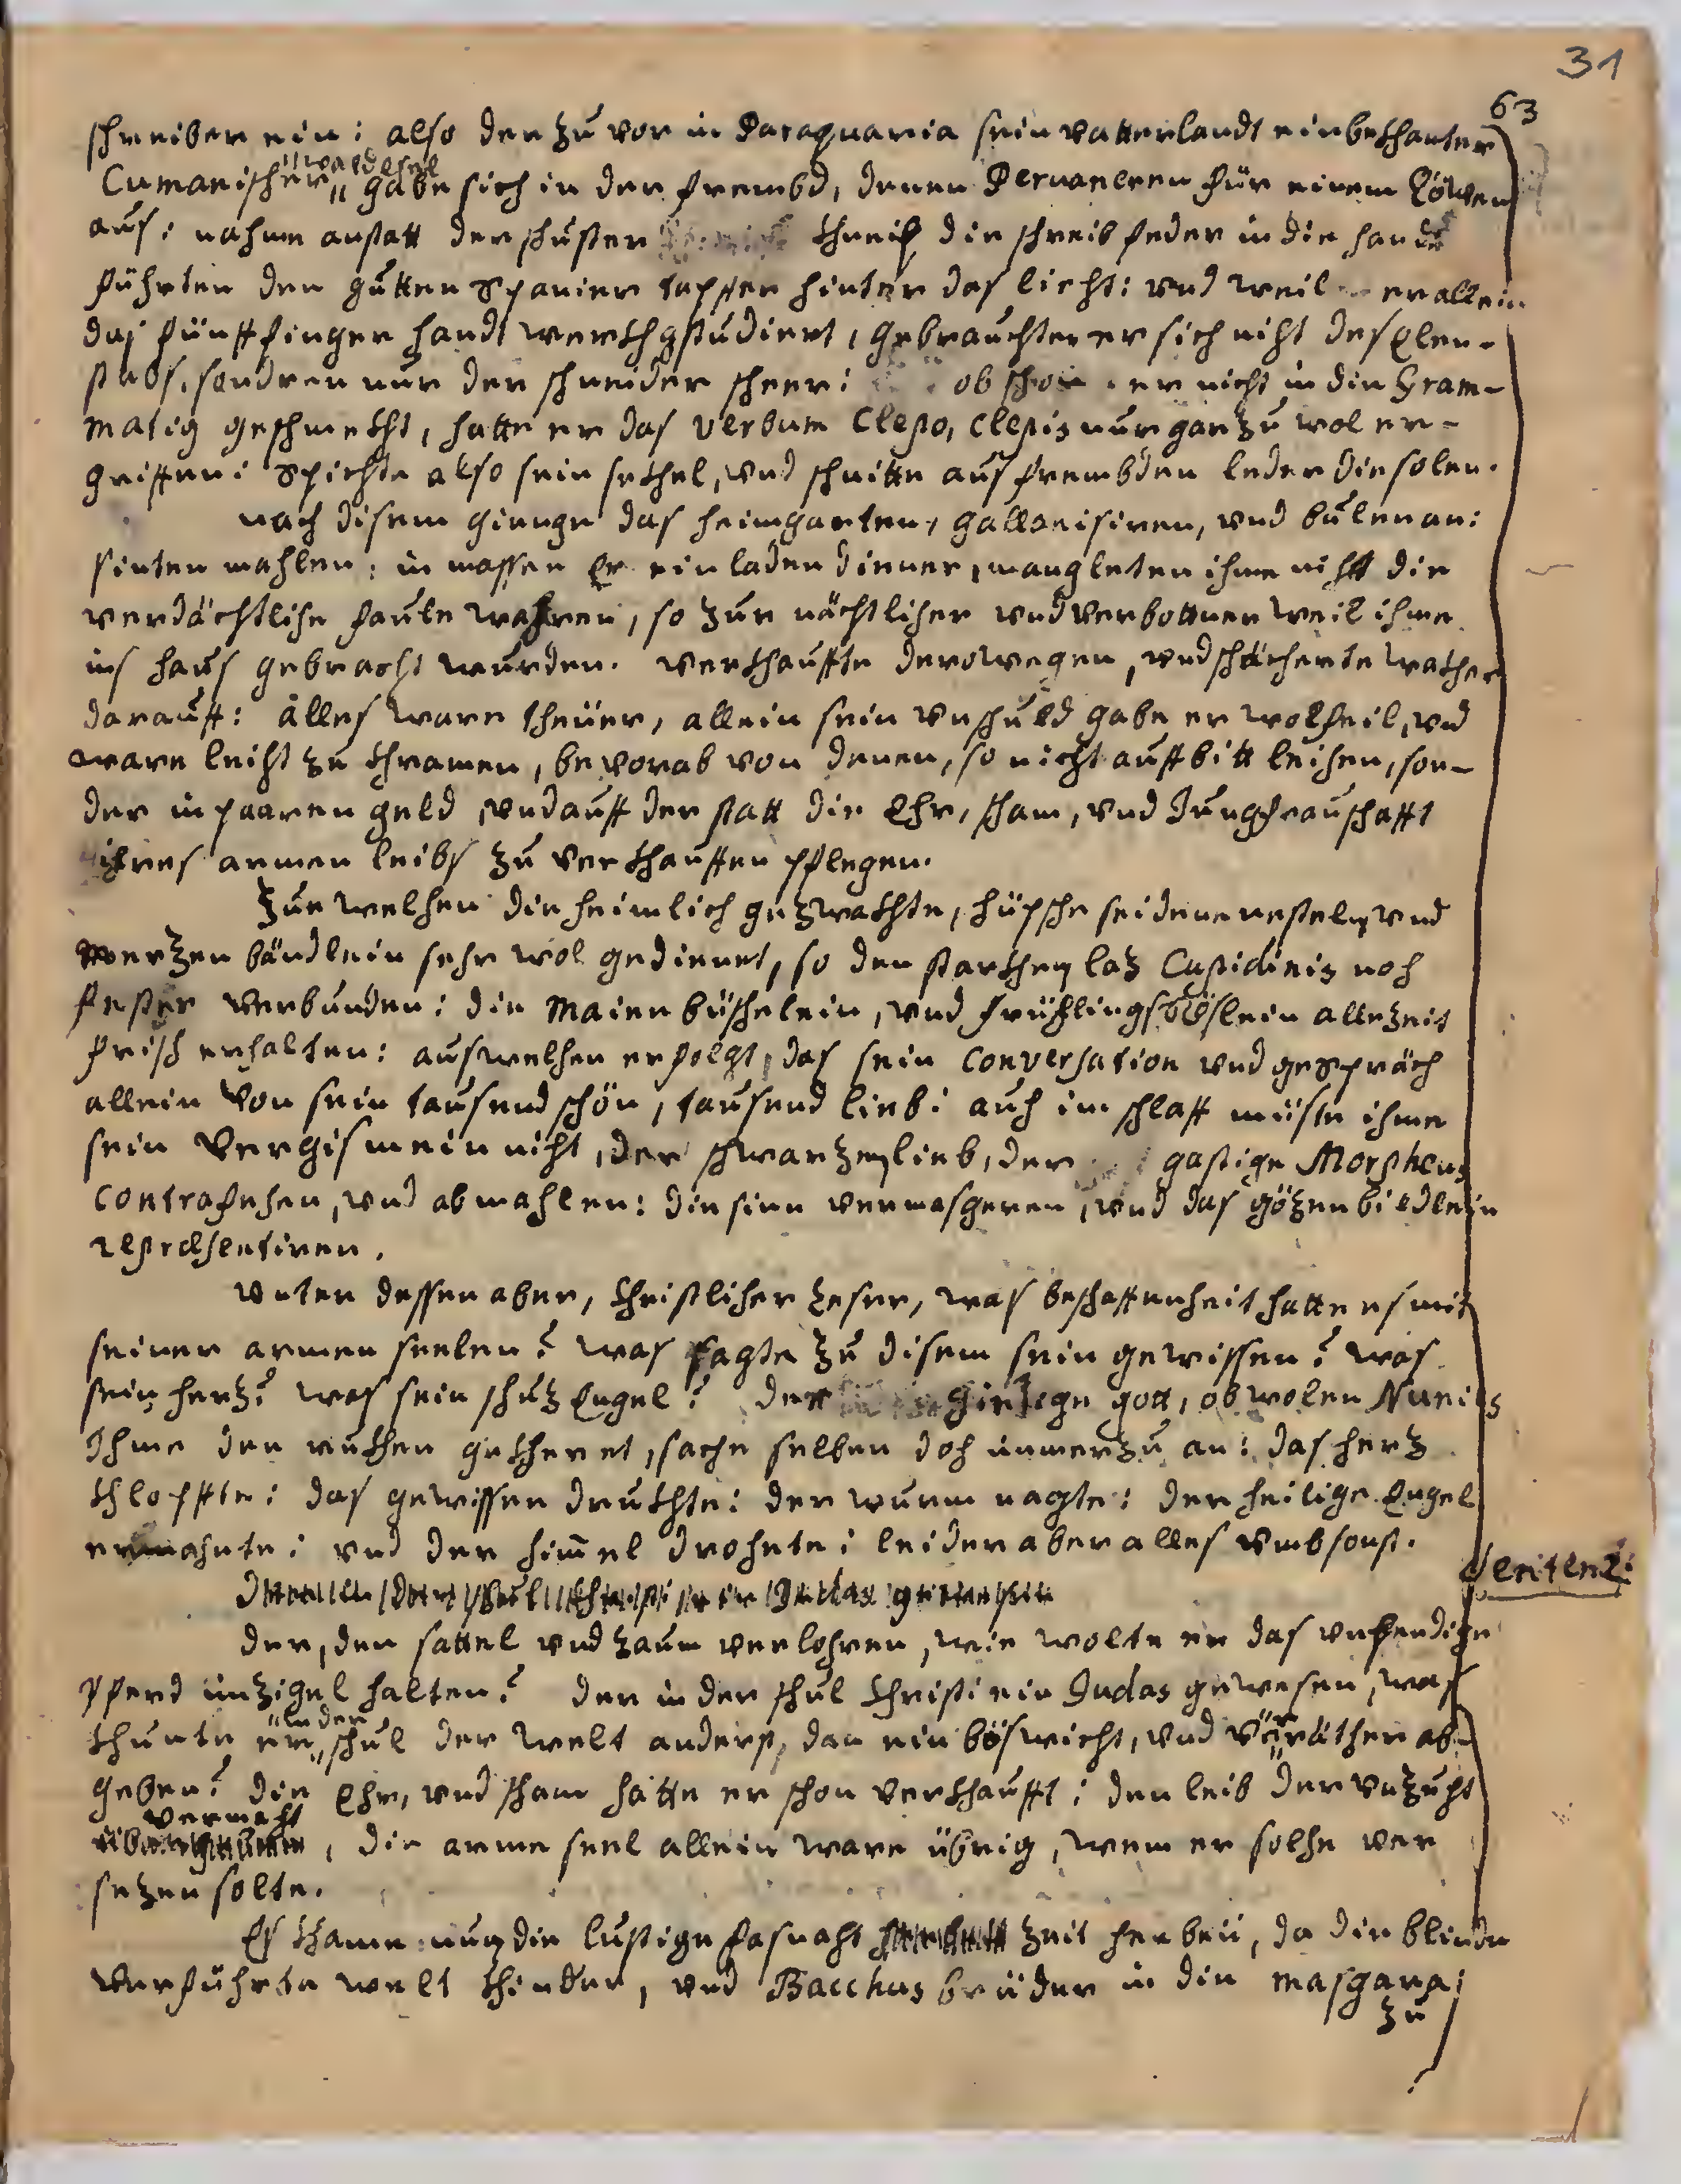 31
63
schreiber ein: also der zuvor in Paraquaria sein vatterlandt einbekhanter
Cumanischer waldesel gabe sich in der frembd, denen Peruaneren für einem Löwen
aus: nahme anstatt der schuster kneip die schreibfeder in die hande
führten den gutten Spanier tapffer hinter das liecht: vnd weil er allein
das fünff finger handtwerkh gstudiert, gebrauchte er sich nicht des Elen-
stabs, sondren nur der schneider scheer: obschon er nicht in die Gram-
matig geschmekht, hatte er das verbum Clepo, clepis nur gar zu wol er-
griffen: Spickte also sein sekhel, vnd schnitte aus frembden leder die solen.
nach disem gienge das heimgarten, gallanisiren, vnd bulen an:
sinten mahlen, in massen Er ein ladendiener, mangleten ihme nicht die
verdächtliche faule wahren, so zur nächtlicher vnd verbottner weil ihme
ins haus gebracht wurden. verkhauffte derowegen, vnd schächerte wakher
darauff: alles ware theüer, allein sein vnschuld gabe er wolfeil, vnd
ware leicht zu khramen, bevorab von denen, so nicht auff bitt leihen, son-
der in paaren geld vnd auff der statt die Ehr, scham, vnd Jungfrauschafft
ihres armen leibs zu verkhauffen pflegen.
Zur welchen die heimlich gezwakhte, hüpsche seidene nestel, vnd
merzen bändlein sehr wol gedienet, so den starkhen laz Cupidinis noch
fester verbunden: die Maien büschelein, vnd frühlings röslein allezeit
frisch erhalten: aus welchen erfolgt, das sein Conversation vnd gespräch
allein von sein tausend schön, tausend lieb: auch im schlaff müste ihme
sein Vergis mein nicht, der schwarzen lieb, der gastige Morpheus
Contrafehen, vnd abmahlen: die sinn vermasgeren, vnd das gözenbiedlein
repræsentiren.
vnter dessen aber, Christlicher Leser, was beschaffenheit hatte es mit
seiner armen seelen? was sagte zu disem sein gewissen? was
sein herz? was sein schuz Engel? der gietige gott, obwolen Nunies
Ihme den rukhen gekheret, sache selben doch immerzu an: das herz
khlopffte: das gewissen drukhte: der wurm nagte: der heilige Engel
ermahnte: vnd der himel drohete: leider aber alles vmbsonst.
Sentenz:
der, den sattel vnd zaum verlohren, wie wolte er das vnbendige
pferd im zigel halten? der in der schul Christi ein Judas gewesen, was
khunte er in der schul der welt anderst, dan ein böswicht, vnd verräther ab-
geben? die Ehr, vnd scham hatte er schon verkhaufft: den leib der vnzucht
vermacht, die arme seel allein ware übrig, wem er solche ver
sezen solte.
Es khame nun die lustige fasnacht zeit herbeü, da die blinde
verführte welt khinder, vnd Bacchus brüder in die masgara:
zu